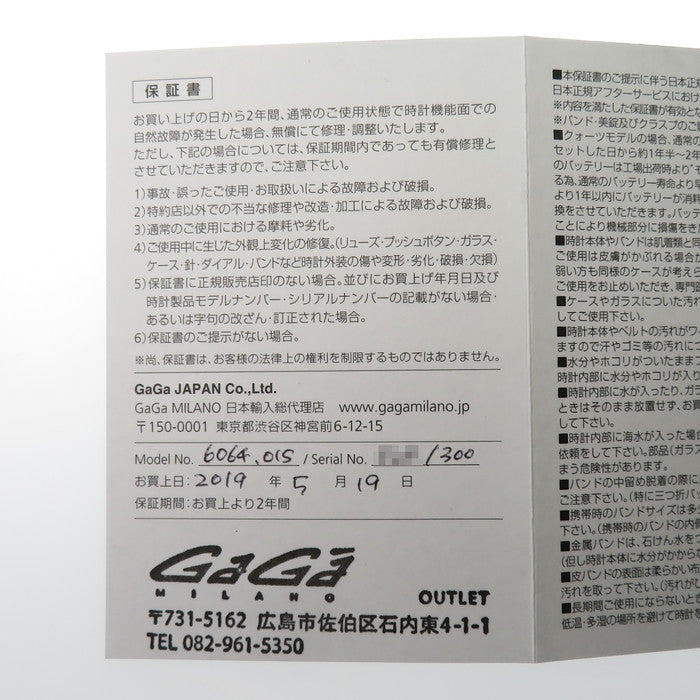 保証書
お買い上げの日から2年間、通常のご使用状態で時計機能面での
自然故障が発生した場合、無償にて修理・調整いたします。
ただし、下記の場合については、保証期間内であっても有償修理と
させていただきますので、ご注意下さい。
1)事故・誤ったご使用・お取扱いによる故障および破損。
2)特約店以外での不当な修理や改造・加工による故障および破損。
3)通常のご使用における摩耗や劣化。
4)ご使用中に生じた外観上変化の修復。(リューズ・プッシュボタン・ガラス・
ケース・針・ダイアル・バンドなど時計外装の傷や変形・劣化・破損・欠損)
5)保証書に正規販売店印のない場合。並びにお買上げ年月日及び
時計製品モデルナンバー・シリアルナンバーの記載がない場合・
あるいは字句の改ざん・訂正された場合。
6)保証書のご提示がない場合。
※尚、保証書は、お客様の法律上の権利を制限するものではありません。
GaGa JAPAN Co.,Ltd.
GaGa MILANO 日本輸入総代理店 www.gagamilano.jp
〒150-0001 東京都渋谷区神宮前6-12-15
Model No. 6064.01S / Serial No. /300
お買上日: 2019 年 5 月 19 日
保証期間:お買上より2年間
GaGà
MILANO OUTLET
〒731-5162 広島市佐伯区石内東4-1-1
TEL 082-961-5350
■本保証書のご提示に伴う日本正規
日本正規アフターサービスにおけ
※内容を満たした保証書が有効とな
※バンド・美錠及びクラスプのご
■クォーツモデルの場合、通常の
セットした日から約1年半~2年
のバッテリーは工場出荷時より"モ
る為、通常のバッテリー寿命より
より1年以内にバッテリーが消耗
換をさせていただきます。バッ
ことにより機械部分に損傷をき
■時計本体やバンドは肌着類と同
ご使用は皮膚がかぶれる場合が
弱い方も同様のケースが考えら
ご使用をお止めいただき、専門
■ケースやガラスについた汚れ
してご使用下さい。
■時計本体やベルトの汚れがワ
ますので汗やゴミ等の汚れにつ
■水分やホコリがついたまま
時計内部に水分やホコリが入り
■時計内部に水が入ったり、ガラ
ときはそのまま放置せず、お買
して下さい。
■時計内部に海水が入った場合
依頼をして下さい。部品(ガラス
まう危険性があります。
■バンドの中留め脱着の際に
ご注意下さい。(特に三つ折バッ
■携帯時のバンドサイズは多少
下さい。(携帯時のバンドの内側
■金属バンドは、石けん水を
(但し時計本体に水分がかから
■皮バンドの表面は柔らかい布
汚れを取って下さい。(汚れが
■長期間ご使用にならないとき
低温・多湿の場所を避けて時計を